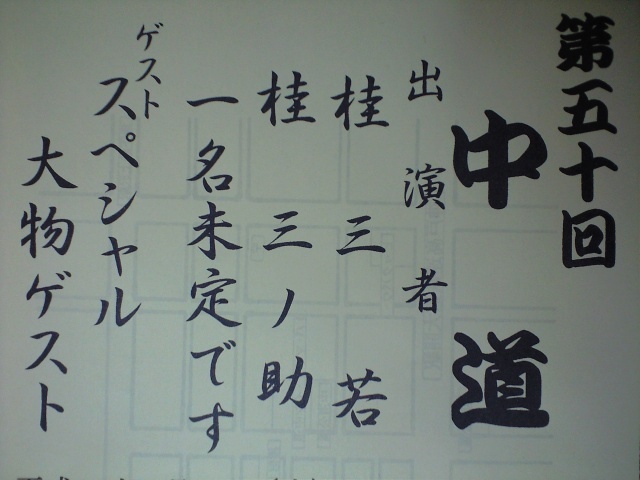 第五十回
中道
出演者
桂三若
桂三ノ助
一名未定です
ゲスト
スペシャル
大物ゲスト